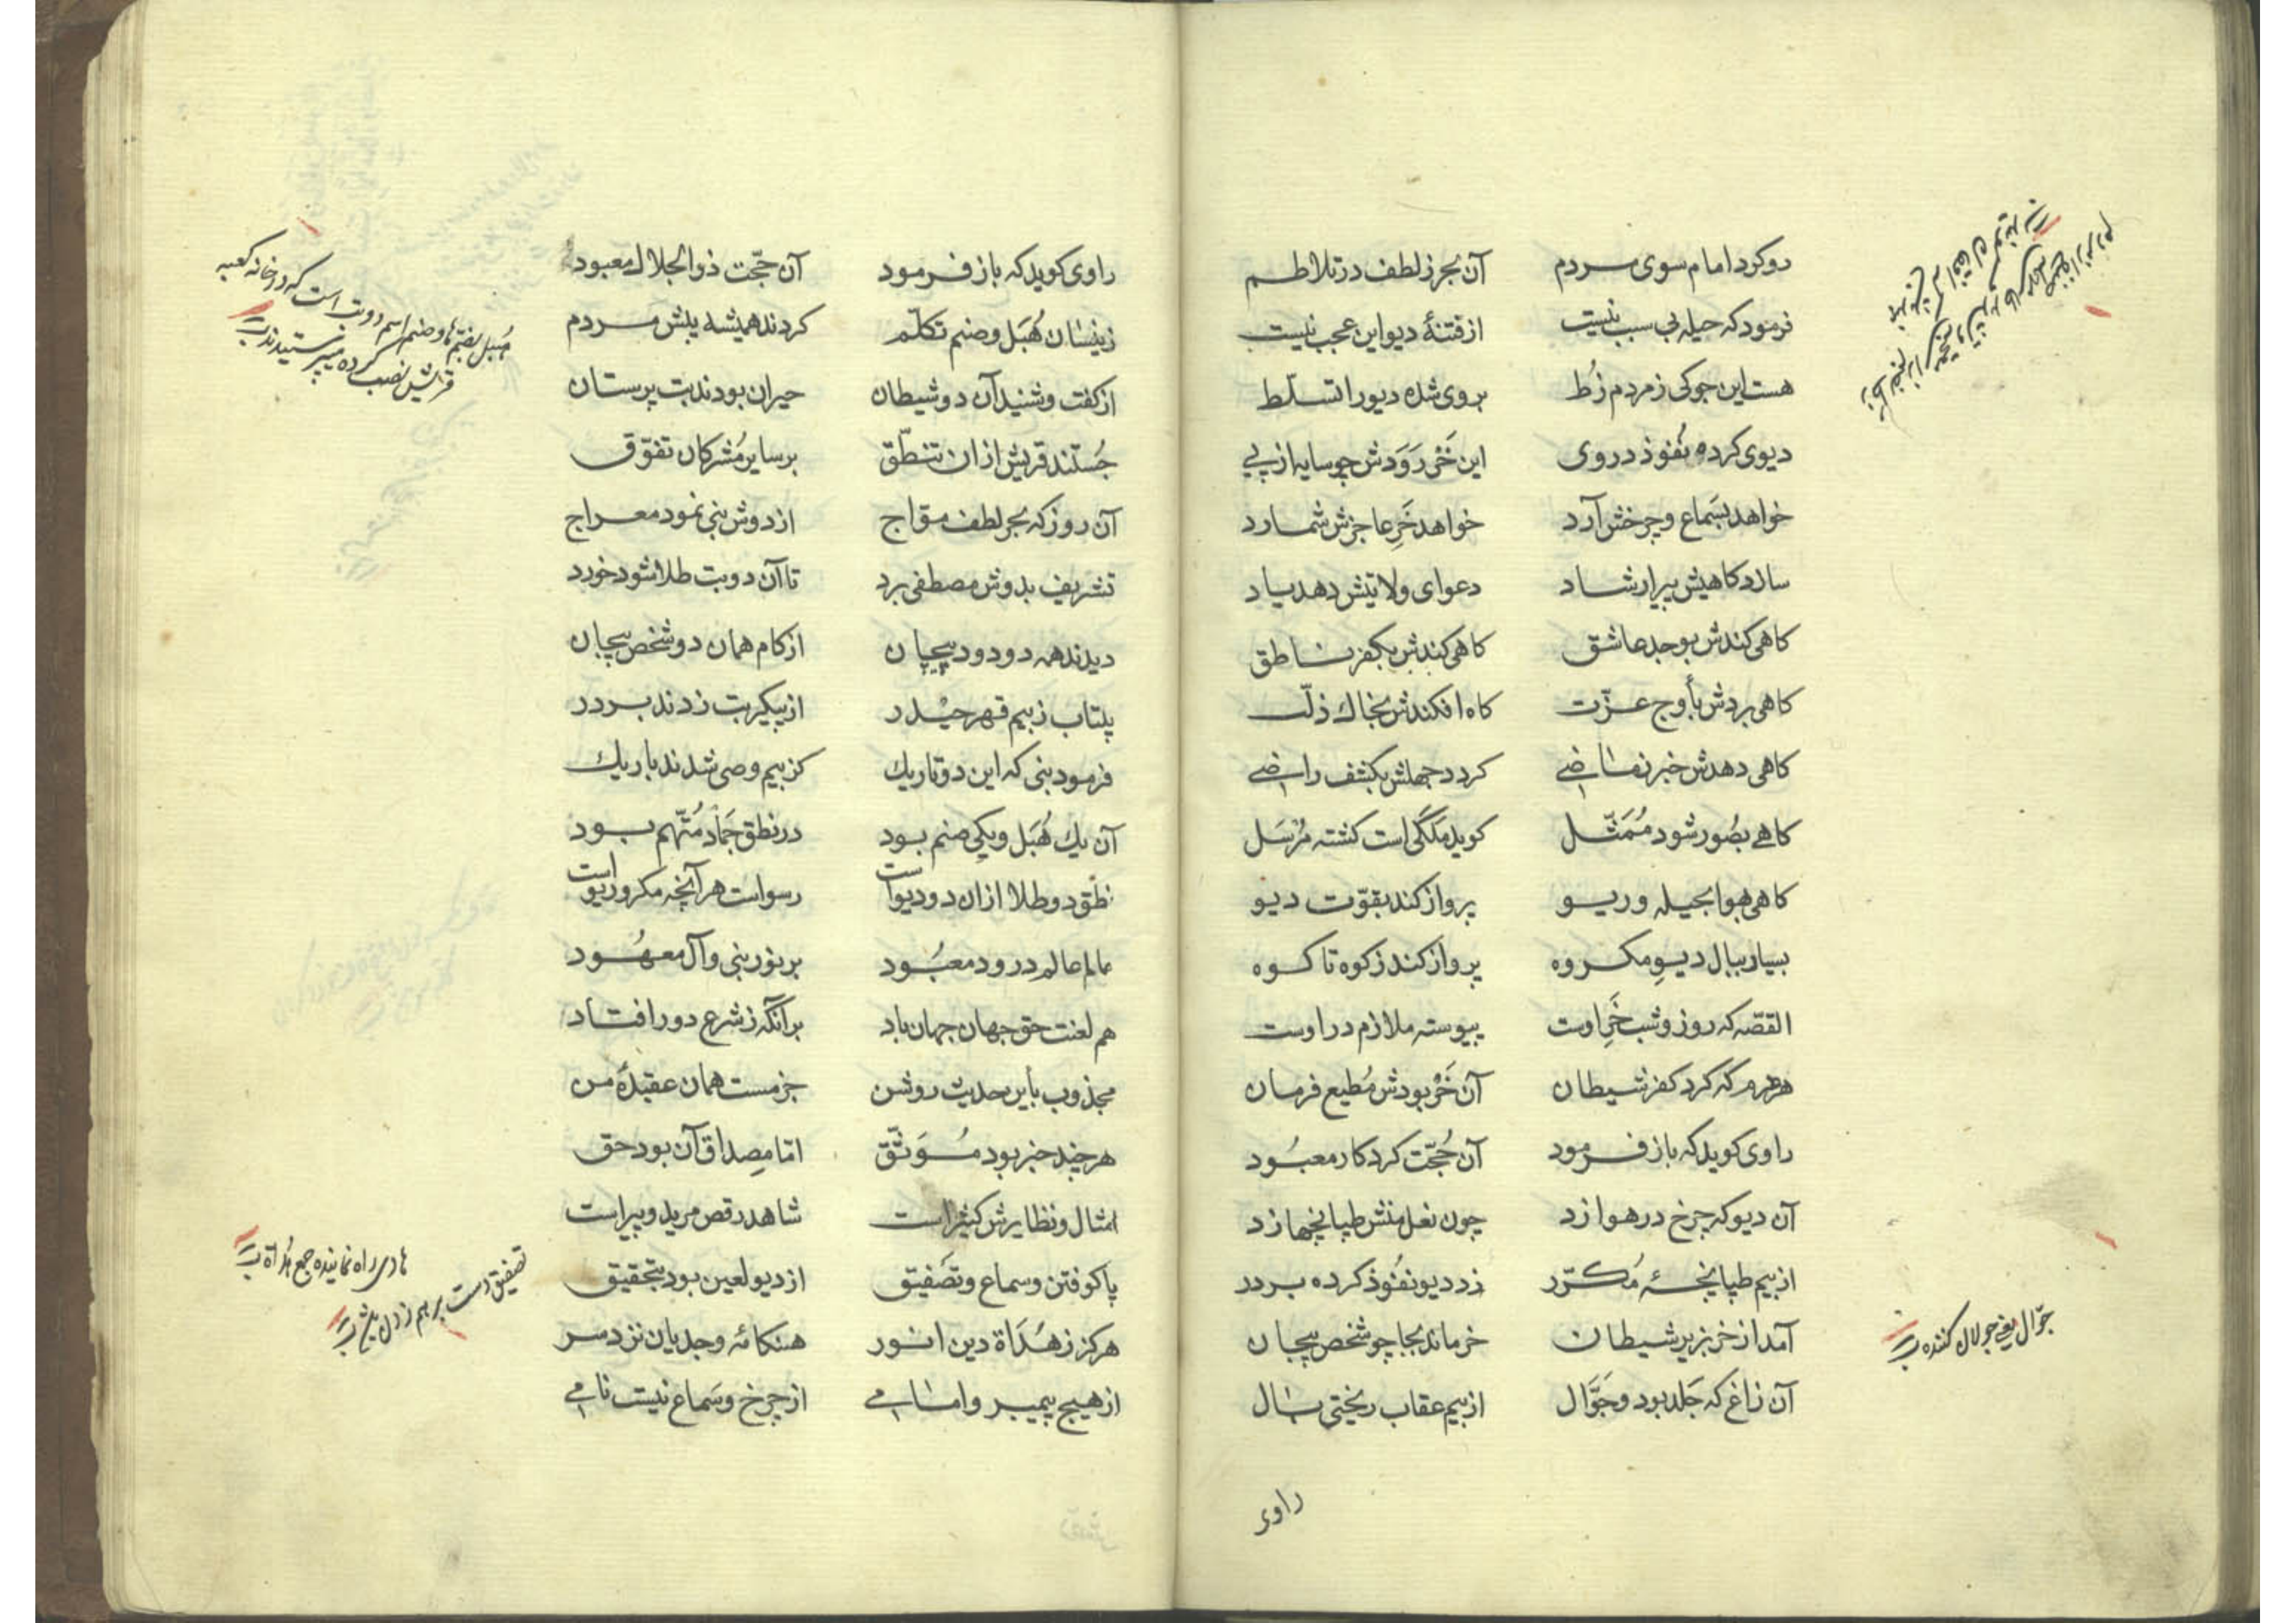 رو کرد امام سوی مردم آن بحر ز لطف در تلاطم
فرمود که حیله بی سبب نیست از فتنهٔ دیو این عجب نیست
هست این جوکی ز مردم زُط بروی شده دیو را تسلّط
دیوی کرده نُفوذ در وی این خَر رَوَدش چو سایه از پی
خواهد بسَماع و چرخش آرد خواهد خَرِ عاجزش شمارد
سازد کاهیش پیر ارشاد دعوای ولایتش دهد یاد
کاهی کندش بوجد عاشق کاهی کندش بکفر ناطق
کاهی بردش بأوج عزّت کاه افکندش بخاك ذلّت
کاهی دهدش خبر ز ماضی کردد جهلش بکشف راضی
کاهی بصُور شود مُمَثّل کوید مَلَکی است کشته مُرْسَل
کاهی بهوا بحیله و ریو پرواز کند بقوّت دیو
بسیار ببال دیوِ مکروه پرواز کند ز کوه تا کوه
القصّه که روز و شب خَرِ اوست پیوسته ملازم در اوست
هر هرم که کرد کفر شیطان آن خَرْ بودش مُطیع فرمان
راوی کوید که باز فرمود آن حُجّت کردکار معبُود
آن دیو که چرخ در هوا زد چون نعل منش طپانچها زد
از بیم طپانچهٔ مُکرّر زد دیو نفُوذ کرده بر در
آمد از خر بزیر شیطان خر ماند بجا چو شخص بیجان
آن زاغ که جَلد بود و جَوَّال از بیم عقاب ریختی بال
جوّال یعنی جولان کننده
راوی
راوی کوید که باز فرمود آن حجّت ذوالجلال معبود
زینسان هُبَل و صنم تکلّم کردند همیشه پیش مردم
از کفت و شنید آن دو شیطان حیران بودند بت پرستان
جُستند قریش از ان تنطّق بر سایر مُشرکان تفوّق
آن روز که بحر لطف موّاج از دوش نبی نمود معراج
تشریف بدوش مصطفی برد تا آن دو بت طلا شود خورد
دیدند همه دو دود پیچان از کام همان دو شخص بیجان
بیتاب ز بیم قهر حیْدر از پیکر بت زدند بر در
فرمود نبی که این دو تاریك کز بیم وصی شدند باریك
آن یك هُبَل و یکی صنم بود در نطق جَماد مُتّهم بود
نطق دو طلا از ان دو دیو است رسواست هر آنچه مکر و ریو است
عالم عالم درود معبُود بر نور نبی و آل معهُود
هم لعنت حق جهان جهان باد بر آنکه ز شرع دور افتاد
مجذوب بأین حدیث روشن جزمست همان عقیدهٔ من
هر چند خبر بود مُوَثّق امّا مِصداق آن بود حق
امثال و نظایرش کثیر است شاهد رقص مرید و پیر است
پا کوفتن و سماع و تصفیق از دیو لعین بود بتحقیق
هرکز ز هُدَاة دین انور هنکامهٔ وجد یان نزد سر
از هیچ پیمبر و امامی از چرخ و سَماع نیست نامی
هُبل بضمّ ها و صنم اسم دو بت است که در خانه کعبه
قریش نصب کرده میپرستیدند
هادی راه نماینده جمع هُداة
تصفیق دست بر هم زدن